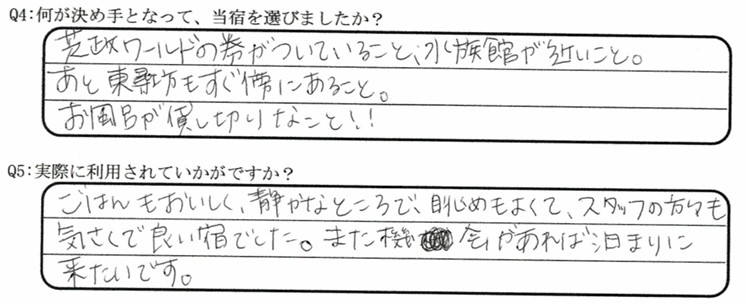 Q4:何が決め手となって、当宿を選びましたか？
芝政ワールドの券がついていること、水族館が近いこと。
あと東尋坊もすぐ傍にあること。
お風呂が貸し切りなこと!!
Q5:実際に利用されていかがですか？
ごはんもおいしく、静かなところで、眺めもよくて、スタッフの方々も
気さくで良い宿でした。また機会があれば泊まりに
来たいです。